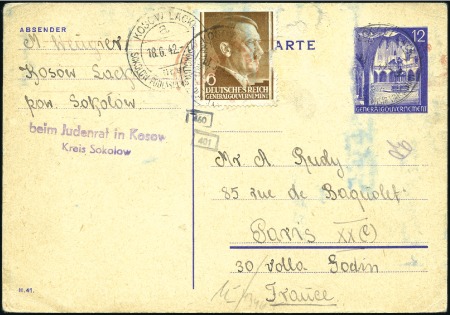 ABSENDER
KARTE
M. Węgier
Kosow Lacki
pow. Sokołow
beim Judenrat in Kosow
Kreis Sokolow
KOSOW LACKI
a
18.6.42
6
DEUTSCHES REICH
GENERALGOUVERNEMENT
12
GENERALGOUVERNEMENT
460
401
Mr A. Rudy
85 rue de Bagnolet
Paris XX e)
30 Volla Godin
France
II.41.